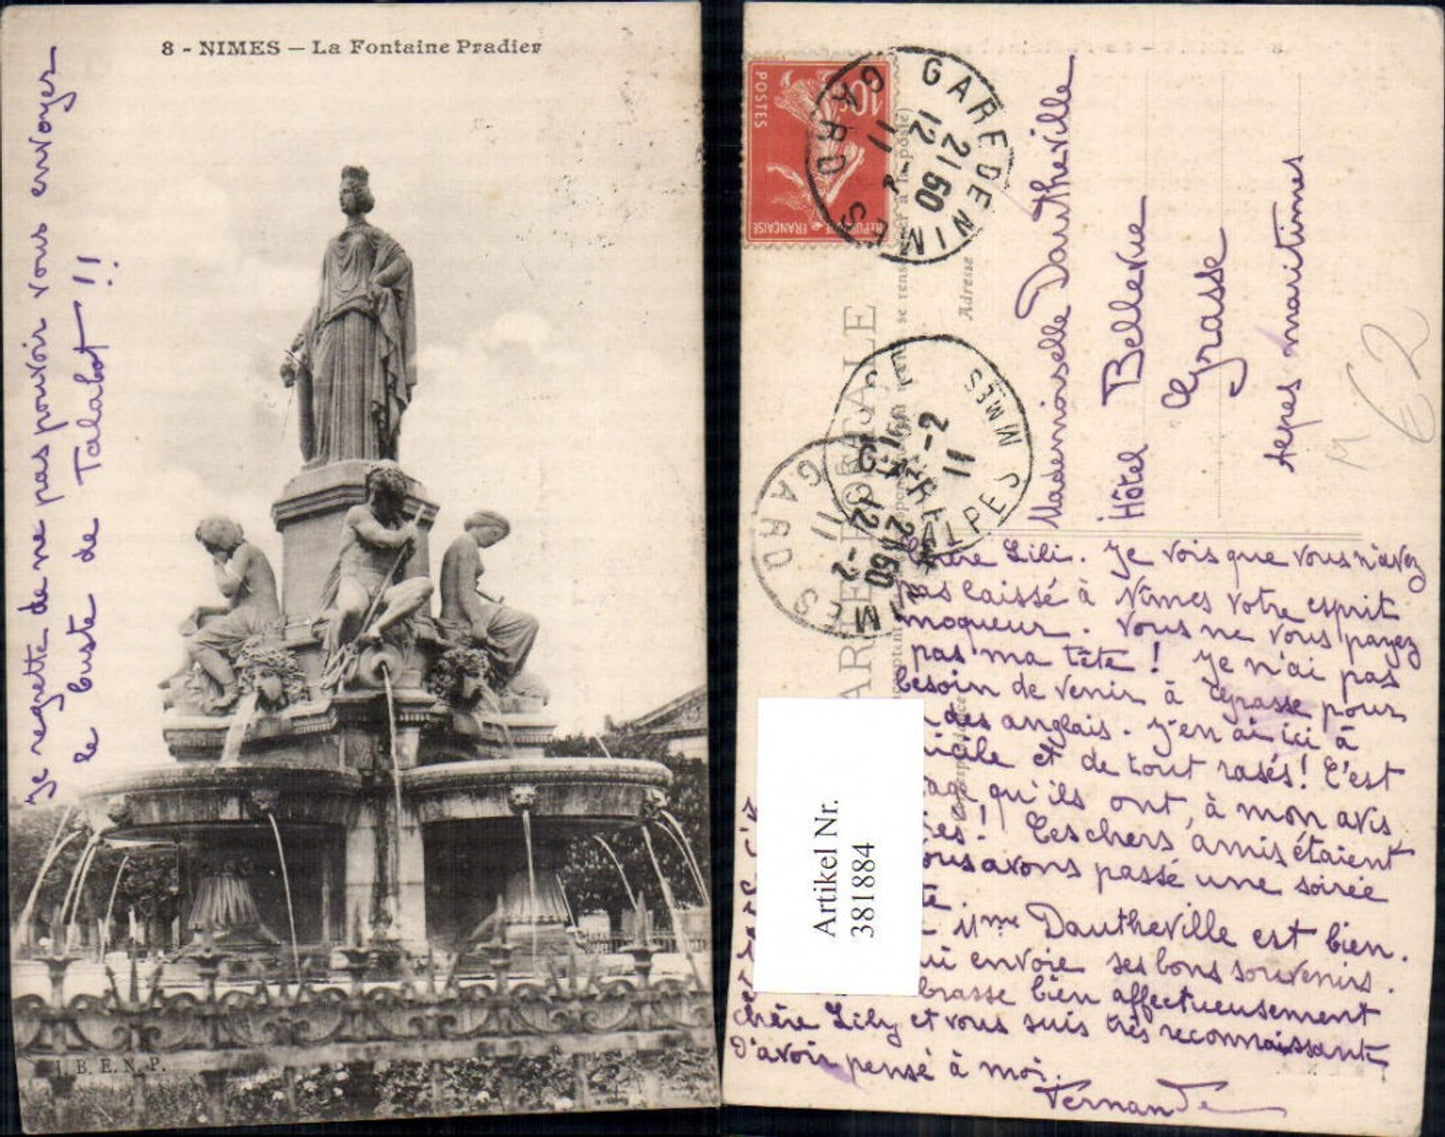 8 - NIMES — La Fontaine Pradier
Je regrette de ne pas pouvoir vous envoyer
le buste de Talabot !!
J. B. E. N. P.
10c
POSTES
REPUBLIQUE FRANÇAISE
GARE DE NIMES
GARD
12
2150
11
Adresse
Mademoiselle Dautheville
Hôtel Bellevue
Grasse
Alpes maritimes
€2
ALPES MMES
-2
11
GARE
NIMES
GARD
12
2150
-2
11
CARTE POSTALE
Chère Lili. Je vois que vous n'avez
pas laissé à Nîmes votre esprit
moqueur. Vous ne vous payez
pas ma tête ! Je n'ai pas
besoin de venir à Grasse pour
des anglais. J'en ai ici à
et de tout rasés ! C'est
qu'ils ont, à mon avis
! Ces chers amis étaient
nous avons passé une soirée
Mme Dautheville est bien.
envoie ses bons souvenirs.
bien affectueusement
chère Lily et vous suis très reconnaissante
d'avoir pensé à moi.
Fernande
Artikel Nr.
381884